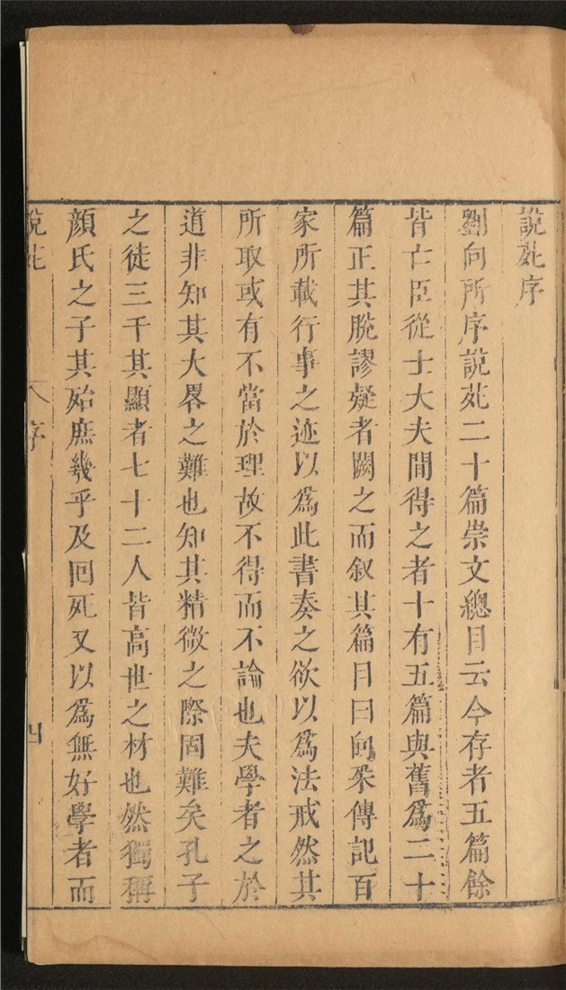 說苑序
劉向所序說苑二十篇崇文總目云今存者五篇餘
皆亡臣從士大夫間得之者十有五篇與舊爲二十
篇正其脫謬疑者闕之而叙其篇目曰向采傳記百
家所載行事之迹以爲此書奏之欲以爲法戒然其
所取或有不當於理故不得而不論也夫學者之於
道非知其大畧之難也知其精微之際固難矣孔子
之徒三千其顯者七十二人皆高世之材也然獨稱
顏氏之子其殆庶幾乎及回死又以爲無好學者而
說苑 序 四